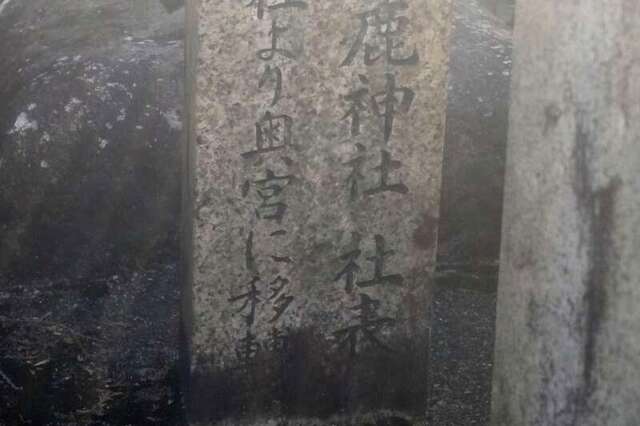 鹿神社 社表
社より奥宮に移転